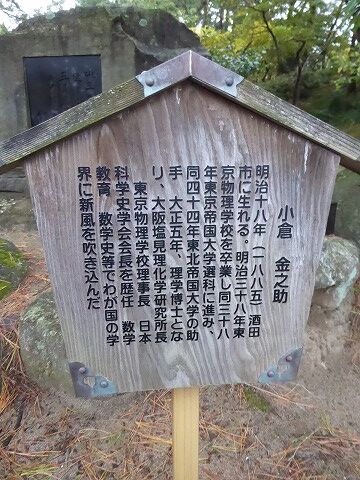 小倉　金之助
明治十八年（一八八五）酒田
市に生れる。明治三十八年東
京物理学校を卒業し同三十八
年東京帝国大学選科に進み、
同四十四年東北帝国大学の助
手　大正五年、理学博士とな
り、大阪塩見理化学研究所長
東京物理学校理事長　日本
科学史学会会長を歴任　数学
教育、数学史等でわが国の学
界に新風を吹き込んだ